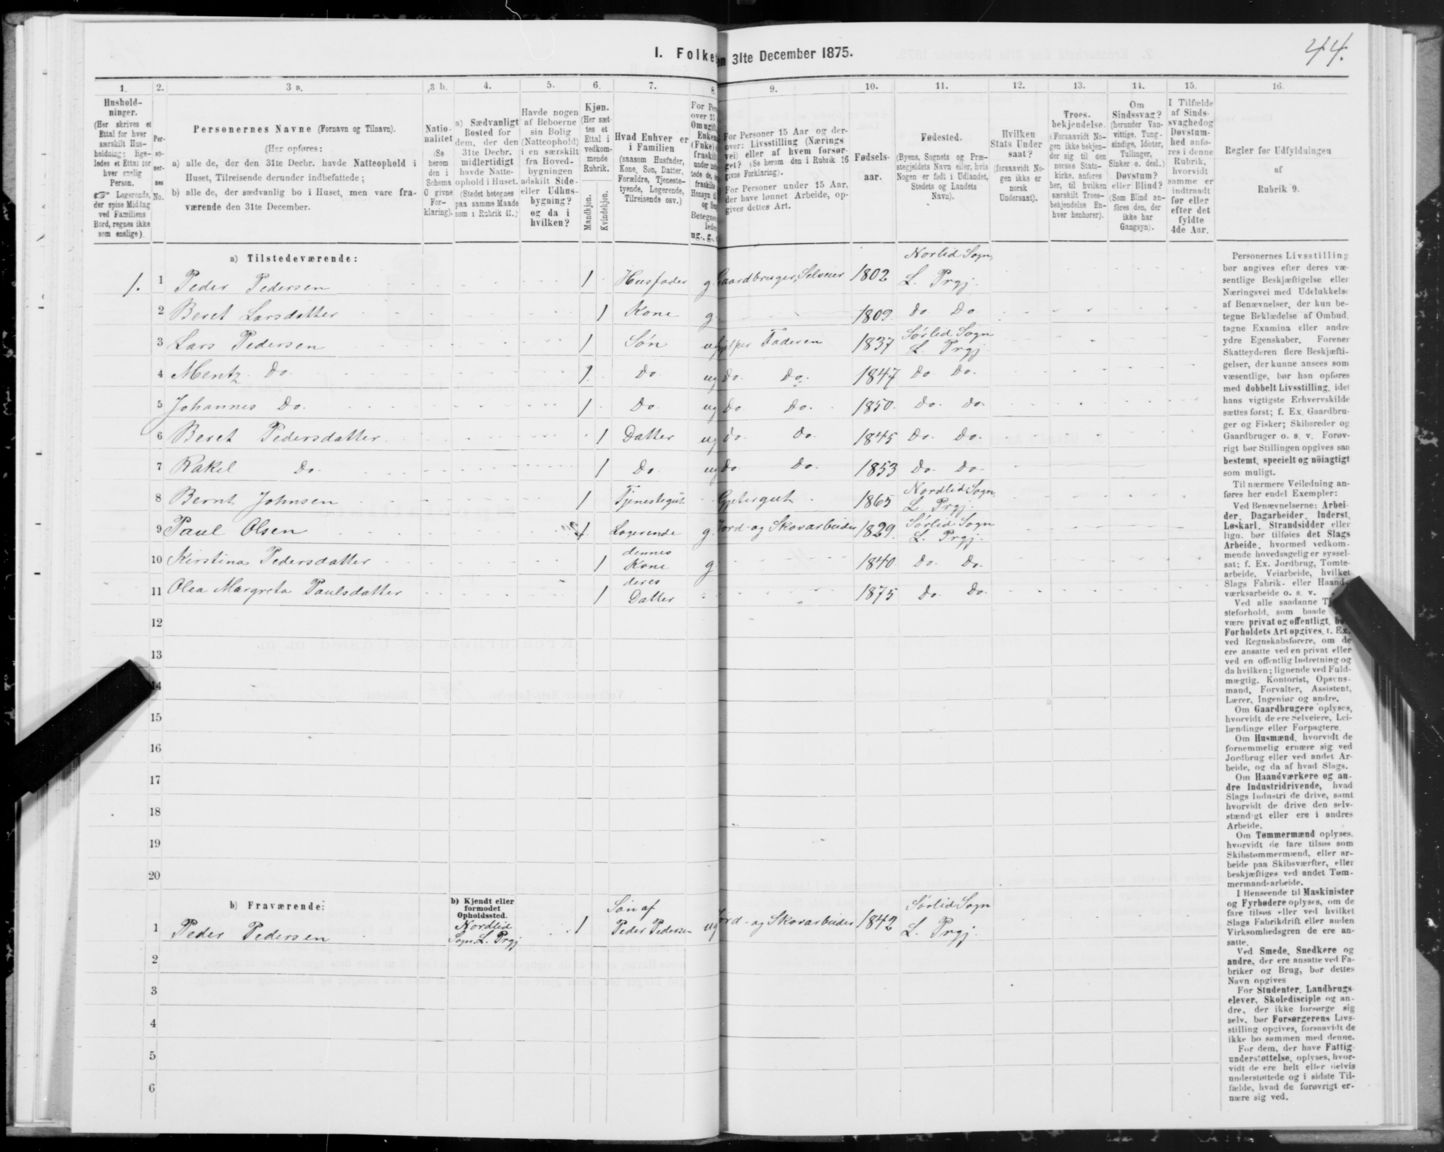 I. Folke en 31te December 1875.
44.
1.
2.
3 a.
3 b.
4.
5.
6.
7.
8.
9.
10.
11.
12.
13.
14.
15.
16.
Hushold-
ninger.
(Her skrives et
Ettal for hver
særskilt Hus-
holdning; lige-
ledes et Ettal for
hver enslig
Person.
☞ Logerende,
der spise Middag
ved Familiens
Bord, regnes ikke
som enslige).
Per-
so-
ner-
nes
No.
Personernes Navne (Fornavn og Tilnavn).
(Her opføres:
a) alle de, der den 31te Decbr. havde Natteophold i
Huset, Tilreisende derunder indbefattede;
b) alle de, der sædvanlig bo i Huset, men vare fra-
værende den 31te December.
Natio-
nalitet
(Se
herom
den i
Schema
O givne
For-
klaring).
a) Sædvanligt
Bosted for
dem, der den
31te Decbr.
midlertidigt
havde Natte-
ophold i Huset.
(Stedet betegnes
paa samme Maade
som i Rubrik 11.)
Havde nogen
af Beboerne
sin Bolig
(Natteophold)
i en særskilt
fra Hoved-
bygningen
adskilt Side-
eller Udhus-
bygning?
og da i
hvilken?
Kjøn.
(Her sæt-
tes et
Ettal i
vedkom-
mende
Rubrik.
Mandkjøn.
Kvindekjøn.
Hvad Enhver er
i Familien
(saasom Husfader,
Kone, Søn, Datter,
Forældre, Tjeneste-
tyende, Logerende,
Tilreisende osv.)
For Personer 15 Aar og der-
over: Livsstilling (Nærings-
vei) eller af hvem forsør-
get? (Se herom den i Rubrik 16
givne Forklaring).
For Personer under 15 Aar,
der have lønnet Arbeide, op-
gives dettes Art.
Fødsels-
aar.
Fødested.
(Byens, Sognets og Præ-
stegjeldets Navn eller, hvis
Nogen er født i Udlandet,
Stedets og Landets
Navn).
Hvilken
Stats Under
saat?
(forsaavidt No-
gen ikke er
norsk
Undersaat).
Troes-
bekjendelse.
(Forsaavidt No-
gen ikke bekjen-
der sig til den
norske Stats-
kirke, anføres
her, til hvilken
særskilt Troes-
bekjendelse En-
hver henhører).
Om
Sindssvag?
(herunder Van-
vittige, Tung-
sindige, Idioter,
Tullinger,
Sinker o. desl.)
Døvstum?
eller Blind?
(Som Blind an-
føres den, der
ikke har
Gangsyn).
I Tilfælde
af Sinds-
svaghed og
Døvstum-
hed anfø-
res i denne
Rubrik,
hvorvidt
samme er
indtraadt
før eller
efter det
fyldte
4de Aar.
Regler for Udfyldningen
af
Rubrik 9.
a) Tilstedeværende:
1. 1 Peder Pedersen 1 Husfader g Gaardbruger, Selveier 1802 Norlid Sogn, L. Prgj.
2 Beret Larsdatter 1 Kone g 1809 do do
3 Lars Pedersen 1 Søn ug hjelper Faderen 1837 Sørlid Sogn L. Prgj
4 Mentz do 1 do ug do do. 1847 do do.
5 Johannes do. 1 do. ug do do. 1850. do. do.
6 Beret Pedersdatter 1 Datter ug do. do. 1845 do. do.
7 Rakel do. 1 do. ug do do. 1853 do. do.
8 Bernt Johnsen 1 Tjenestegut Gjetergut 1865 Nordlid Sogn, L. Prgj.
9 Paul Olsen 1 Logerende g. Jord- og Skovarbeider 1829. Sørlid Sogn L. Prgj.
10 Kirstina Pedersdatter 1 dennes Kone g 1840 do do.
11 Olea Margreta Paulsdatter 1 deres Datter 1875 do. do.
12
13
14
15
16
17
18
19
20
b) Fraværende:
b) Kjendt eller
formodet
Opholdssted.
1 Peder Pedersen Nordlid Sogn L. Prgj 1 Søn af Peder Pedersen ug Jord- og Skovarbeider 1842 Sørlid Sogn L. Prgj.
2
3
4
5
6
Personernes Livsstilling
bør angives efter deres væ-
sentlige Beskjæftigelse eller
Næringsvei med Udelukkelse
af Benævnelser, der kun be-
tegne Beklædelse af Ombud,
tagne Examina eller andre
ydre Egenskaber. Forener
Skatteyderen flere Beskjæfti-
gelser, der kunne ansees som
væsentlige, bør han opføres
med dobbelt Livsstilling, idet
hans vigtigste Erhvervskilde
sættes først; f. Ex. Gaardbru-
ger og Fisker; Skibsreder og
Gaardbruger o. s. v. Forøv-
rigt bør Stillingen opgives saa
bestemt, specielt og nöiagtigt
som muligt.
Til nærmere Veiledning an-
føres her endel Exempler:
Ved Benævnelserne: Arbei-
der, Dagarbeider, Inderst,
Løskarl, Strandsidder eller
lign. bør tilføies det Slags
Arbeide, hvormed vedkom-
mende hovedsagelig er syssel-
sat; f. Ex. Jordbrug, Tomte-
arbeide, Veiarbeide, hvilket
Slags Fabrik- eller Haand-
værksarbeide o. s. v.
Ved alle saadanne
steforhold, som baade
være privat og offentligt,
Forholdets Art opgives, t. Ex.
ved Regnskabsførere, om de
ere ansatte ved en privat eller
ved en offentlig Indretning og
da hvilken; lignende ved Fuld-
mægtig, Kontorist, Opsyns-
mand, Forvalter, Assistent,
Lærer, Ingeniør og andre.
Om Gaardbrugere oplyses,
hvorvidt de ere Selveiere, Lei-
lændinge eller Forpagtere.
Om Husmænd, hvorvidt de
fornemmelig ernære sig ved
Jordbrug eller ved andet Ar-
beide, og da af hvad Slags.
Om Haandværkere og an-
dre Industridrivende, hvad
Slags Industri de drive, samt
hvorvidt de drive den selv-
stændigt eller ere i andres
Arbeide.
Om Tømmermænd oplyses,
hvorvidt de fare tilsøs som
Skibstømmermænd, eller ar-
beide paa Skibsværfter, eller
beskjæftiges ved andet Tøm-
mermandsarbeide.
I Henseende til Maskinister
og Fyrbødere oplyses, om de
fare tilsøs eller ved hvilket
Slags Fabrikdrift eller anden
Virksomhedsgren de ere an-
satte.
Ved Smede, Snedkere og
andre, der ere ansatte ved Fa-
briker og Brug, bør dettes
Navn opgives
For Studenter, Landbrugs-
elever, Skoledisciple og an-
dre, der ikke forsørge sig
selv, bør Forsørgerens Livs-
stilling opgives, forsaavidt de
ikke bo sammen med denne.
For dem, der have Fattig-
understøttelse, oplyses, hvor-
vidt de ere helt eller delvis
understøttede og i sidste Til-
fælde, hvad de forøvrigt er-
nære sig ved.